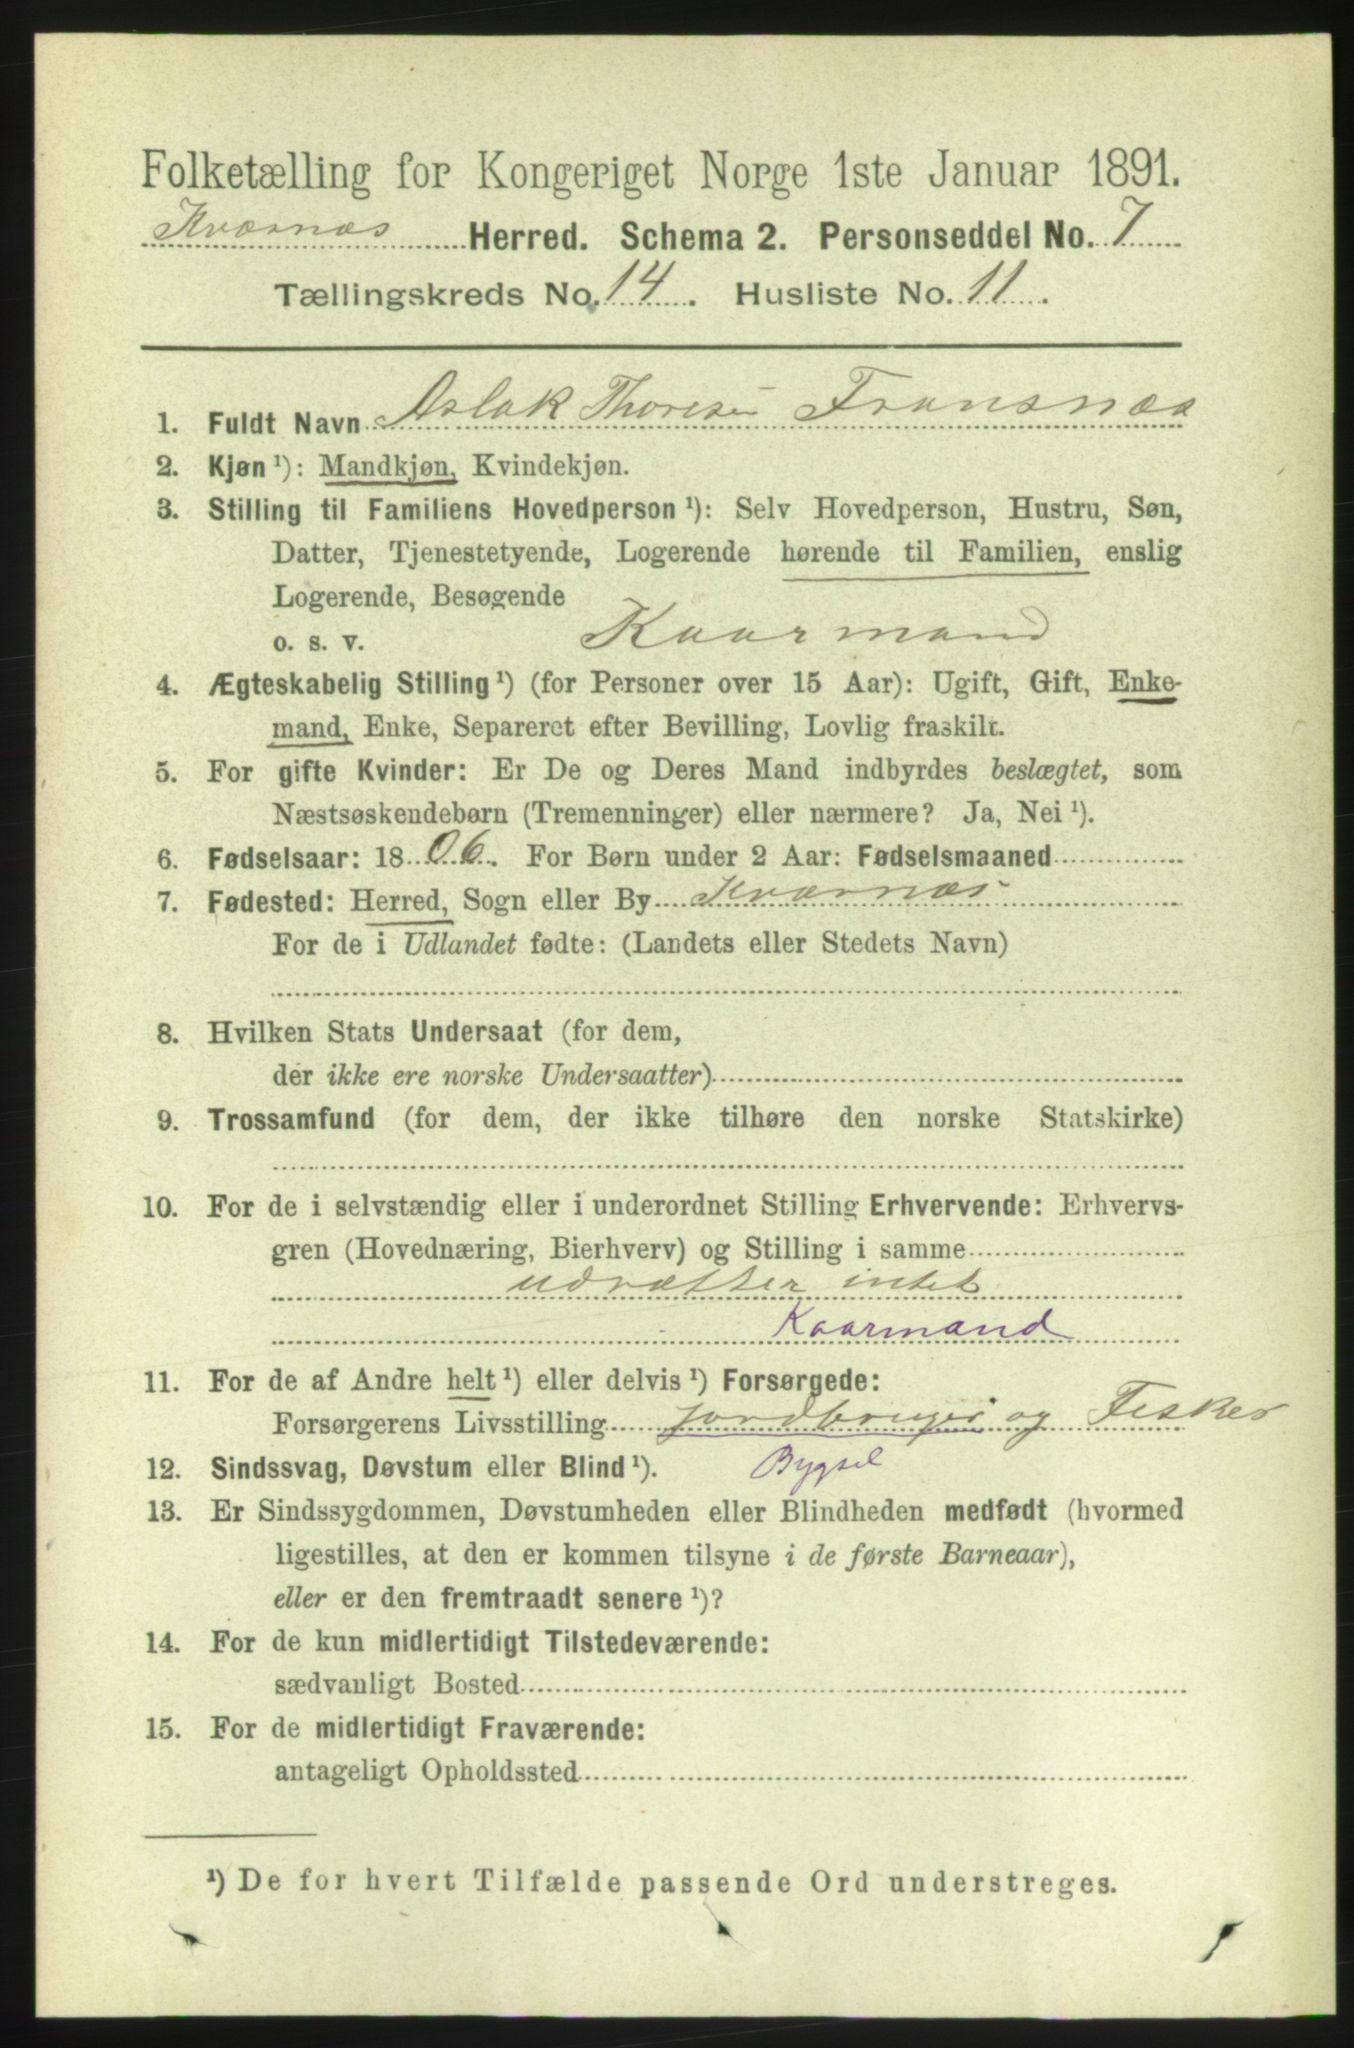 Folketælling for Kongeriget Norge 1ste Januar 1891.
Kværnæs Herred. Schema 2. Personseddel No. 7
Tællingskreds No. 14. Husliste No. 11.
1. Fuldt Navn Aslak Thoresen Fransnæs
2. Kjøn ¹): Mandkjøn, Kvindekjøn.
3. Stilling til Familiens Hovedperson ¹): Selv Hovedperson, Hustru, Søn,
Datter, Tjenestetyende, Logerende hørende til Familien, enslig
Logerende, Besøgende
o. s. v. Kaarmand
4. Ægteskabelig Stilling ¹) (for Personer over 15 Aar): Ugift, Gift, Enke-
mand, Enke, Separeret efter Bevilling, Lovlig fraskilt.
5. For gifte Kvinder: Er De og Deres Mand indbyrdes beslægtet, som
Næstsøskendebørn (Tremenninger) eller nærmere? Ja, Nei ¹).
6. Fødselsaar: 1806. For Børn under 2 Aar: Fødselsmaaned
7. Fødested: Herred, Sogn eller By Kværnæs
For de i Udlandet fødte: (Landets eller Stedets Navn)
8. Hvilken Stats Undersaat (for dem,
der ikke ere norske Undersaatter)
9. Trossamfund (for dem, der ikke tilhøre den norske Statskirke)
10. For de i selvstændig eller i underordnet Stilling Erhvervende: Erhvervs-
gren (Hovednæring, Bierhverv) og Stilling i samme
udretter intet
Kaarmand
11. For de af Andre helt ¹) eller delvis ¹) Forsørgede:
Forsørgerens Livsstilling jordbruger og Fisker
12. Sindssvag, Døvstum eller Blind ¹). Bygsel
13. Er Sindssygdommen, Døvstumheden eller Blindheden medfødt (hvormed
ligestilles, at den er kommen tilsyne i de første Barneaar),
eller er den fremtraadt senere ¹)?
14. For de kun midlertidigt Tilstedeværende:
sædvanligt Bosted
15. For de midlertidigt Fraværende:
antageligt Opholdssted
¹) De for hvert Tilfælde passende Ord understreges.